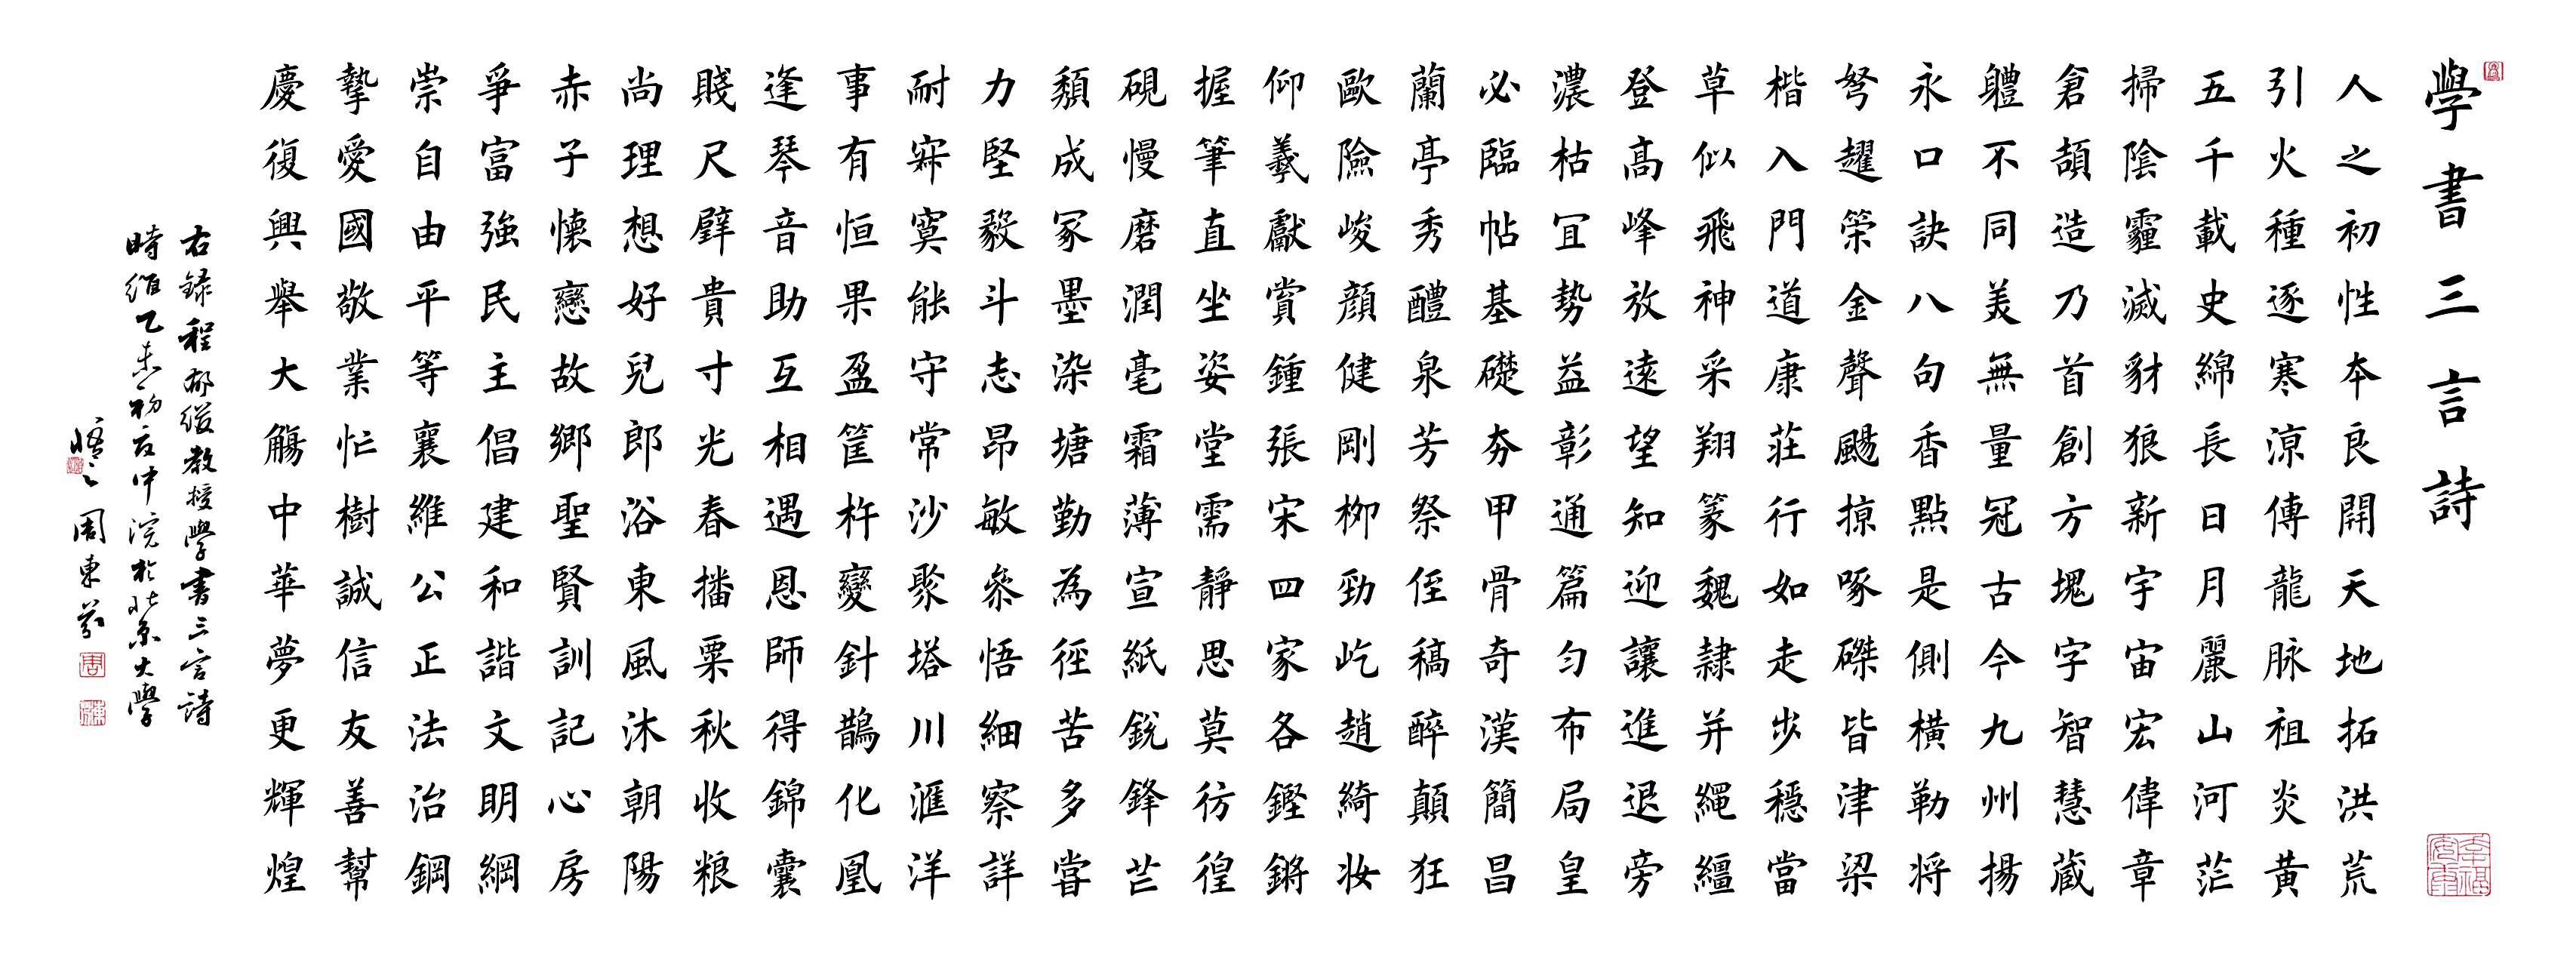 學書三言詩
人之初性本良開天地拓洪荒
引火種逐寒涼傳龍脉祖炎黃
五千載史綿長日月麗山河茫
掃陰霾滅豺狼新宇宙宏偉章
倉頡造乃首創方塊字智慧蔵
軆不同美無量冠古今九州揚
永口訣八句香點是側橫勒将
弩趯策金聲颺掠啄磔皆津梁
楷入門道康莊行如走步穩當
草似飛神采翔篆魏隷并繩繮
登高峰放遠望知迎讓進退旁
濃枯冝勢益彰通篇勻布局皇
必臨帖基礎夯甲骨奇漢簡昌
蘭亭秀醴泉芳祭侄稿醉顛狂
歐險峻顔健剛柳勁屹趙綺妝
仰羲獻賞鍾張宋四家各鏗鏘
握筆直坐姿堂需靜思莫彷徨
硯慢磨潤毫霜薄宣紙銳鋒芒
頹成冢墨染塘勤為徑苦多嘗
力堅毅斗志昂敏叅悟細察詳
耐寂寞能守常沙聚塔川滙洋
事有恒果盈筐杵變針鵲化凰
逢琴音助互相遇恩師得錦囊
賤尺璧貴寸光春播粟秋收粮
尚理想好兒郎浴東風沐朝陽
赤子懷戀故鄉聖賢訓記心房
爭富強民主倡建和諧文明綱
崇自由平等襄維公正法治鋼
摯愛國敬業忙樹誠信友善幫
慶復興舉大觴中華夢更輝煌
右録程郁缀教授學書三言詩
時維乙未初夏中浣於北京大學
周東芬